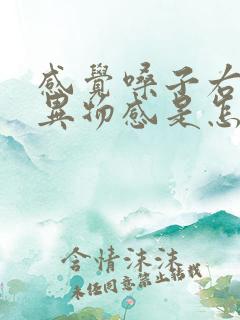 感覺嗓子右
異物感是怎
含情沫沫
未经同意禁止转载